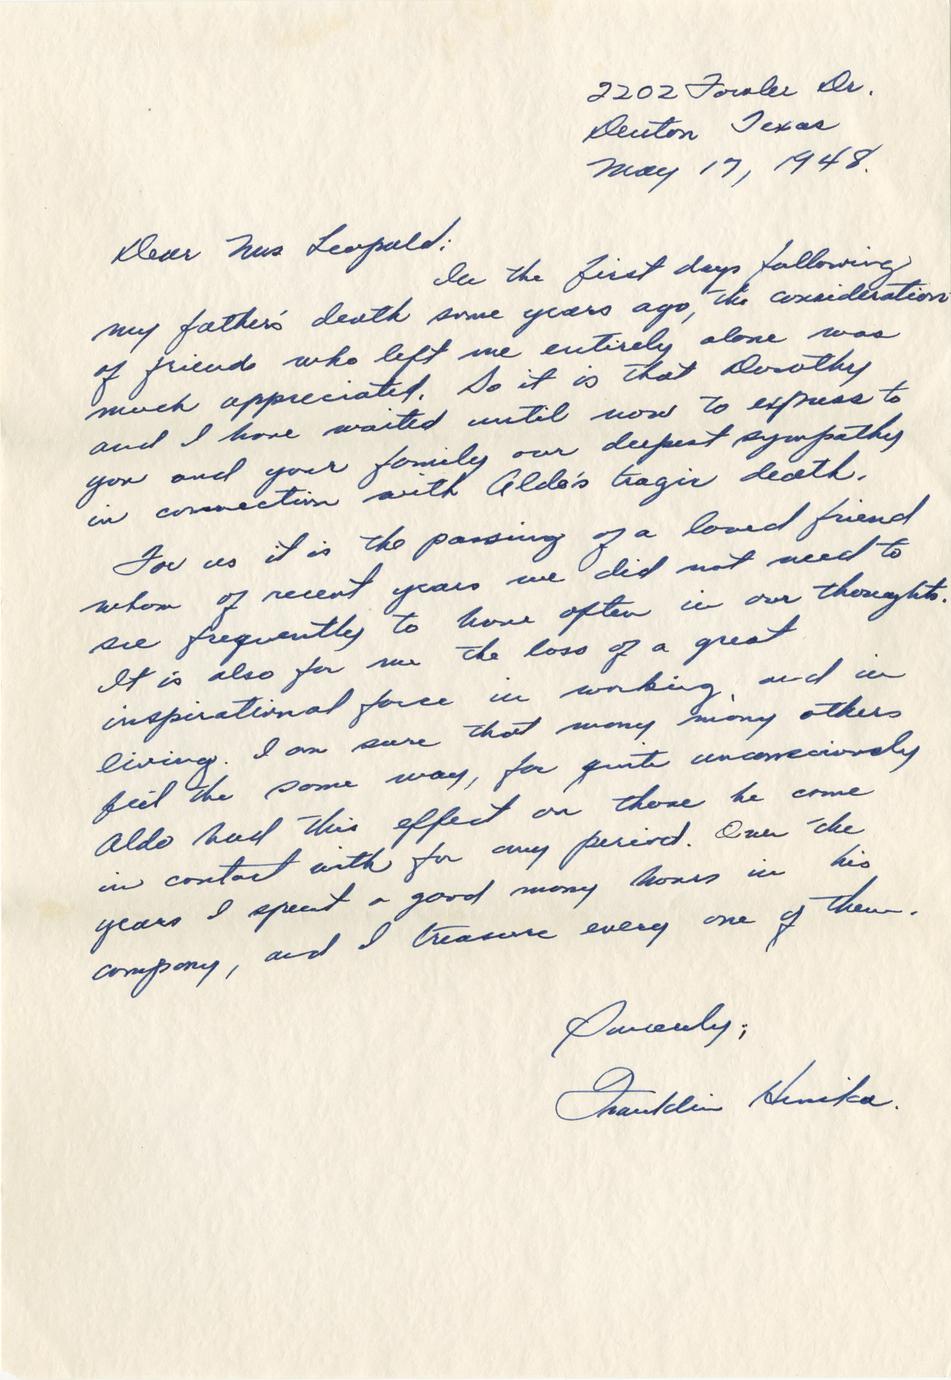 2202 Fowler Dr.
Denton Texas
May 17, 1948.
Dear Mrs Leopold:
In the first days following
my father's death some years ago, the consideration
of friends who left me entirely alone was
much appreciated. So it is that Dorothy
and I have waited until now to express to
you and your family our deepest sympathy
in connection with Aldo's tragic death.
For us it is the passing of a loved friend
whom of recent years we did not need to
see frequently to have often in our thoughts.
It is also for me the loss of a great
inspirational force in working, and in
living. I am sure that many many others
feel the same way, for quite unconsciously
Aldo had this effect on those he come
in contact with for any period. Over the
years I spent a good many hours in his
company, and I treasure every one of them.
Sincerely;
Franklin Henika.